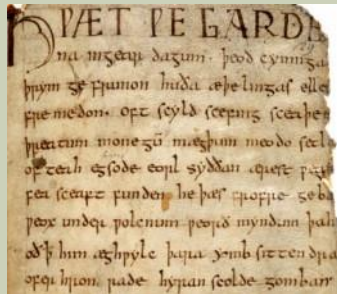 HǷÆT ǷE GARDE
na ingear dagum. þeod cyninga
þrym ge frunon huða æþelingas elle
fremedon. oft scyld scefing sceaþe
þreatum monegū mægþum meodo setla
of teah egsode eorl syððan ærest ƿearð
fea sceaft funden he þæs frofre geba
ƿeox under ƿolcnum ƿeorð myndum þah
oð þ him æghƿylc þara ymb sittendra
ofer hron rade hyran scolde gomban